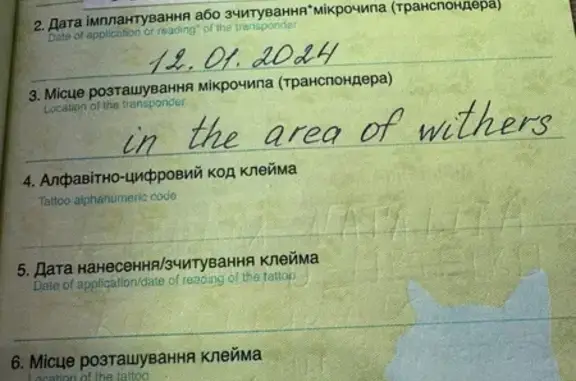 2. Дата імплантування або зчитування*мікрочипа (транспондера)
Date of application or reading* of the transponder
12.01.2024
3. Місце розташування мікрочипа (транспондера)
Location of the transponder
in the area of withers
4. Алфавітно-цифровий код клейма
Tattoo alphanumeric code
5. Дата нанесення/зчитування клейма
Date of application/date of reading of the tattoo
6. Місце розташування клейма
Location of the tattoo